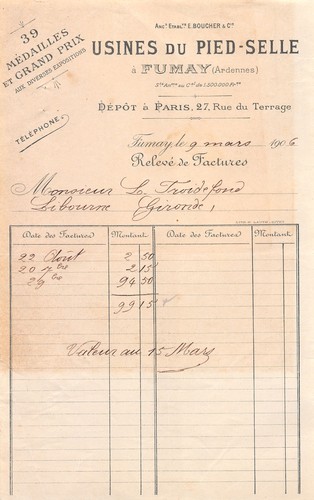 Ancs Etablts E. BOUCHER & Cie
39
MÉDAILLES
ET GRAND PRIX
AUX DIVERSES EXPOSITIONS
USINES DU PIED-SELLE
à FUMAY (Ardennes)
Sté Anme au Cal de 1.500.000 Frs
DÉPÔT à PARIS, 27, Rue du Terrage
TÉLÉPHONE
Fumay, le 9 mars 1906
Relevé de Factures
Monsieur L. Troidefond
Libourne Gironde,
Date des Factures Montant Date des Factures Montant
22 Août 2 50
20 7bre 2 15
29 bre 94 50
99 15
Valeur au 15 Mars